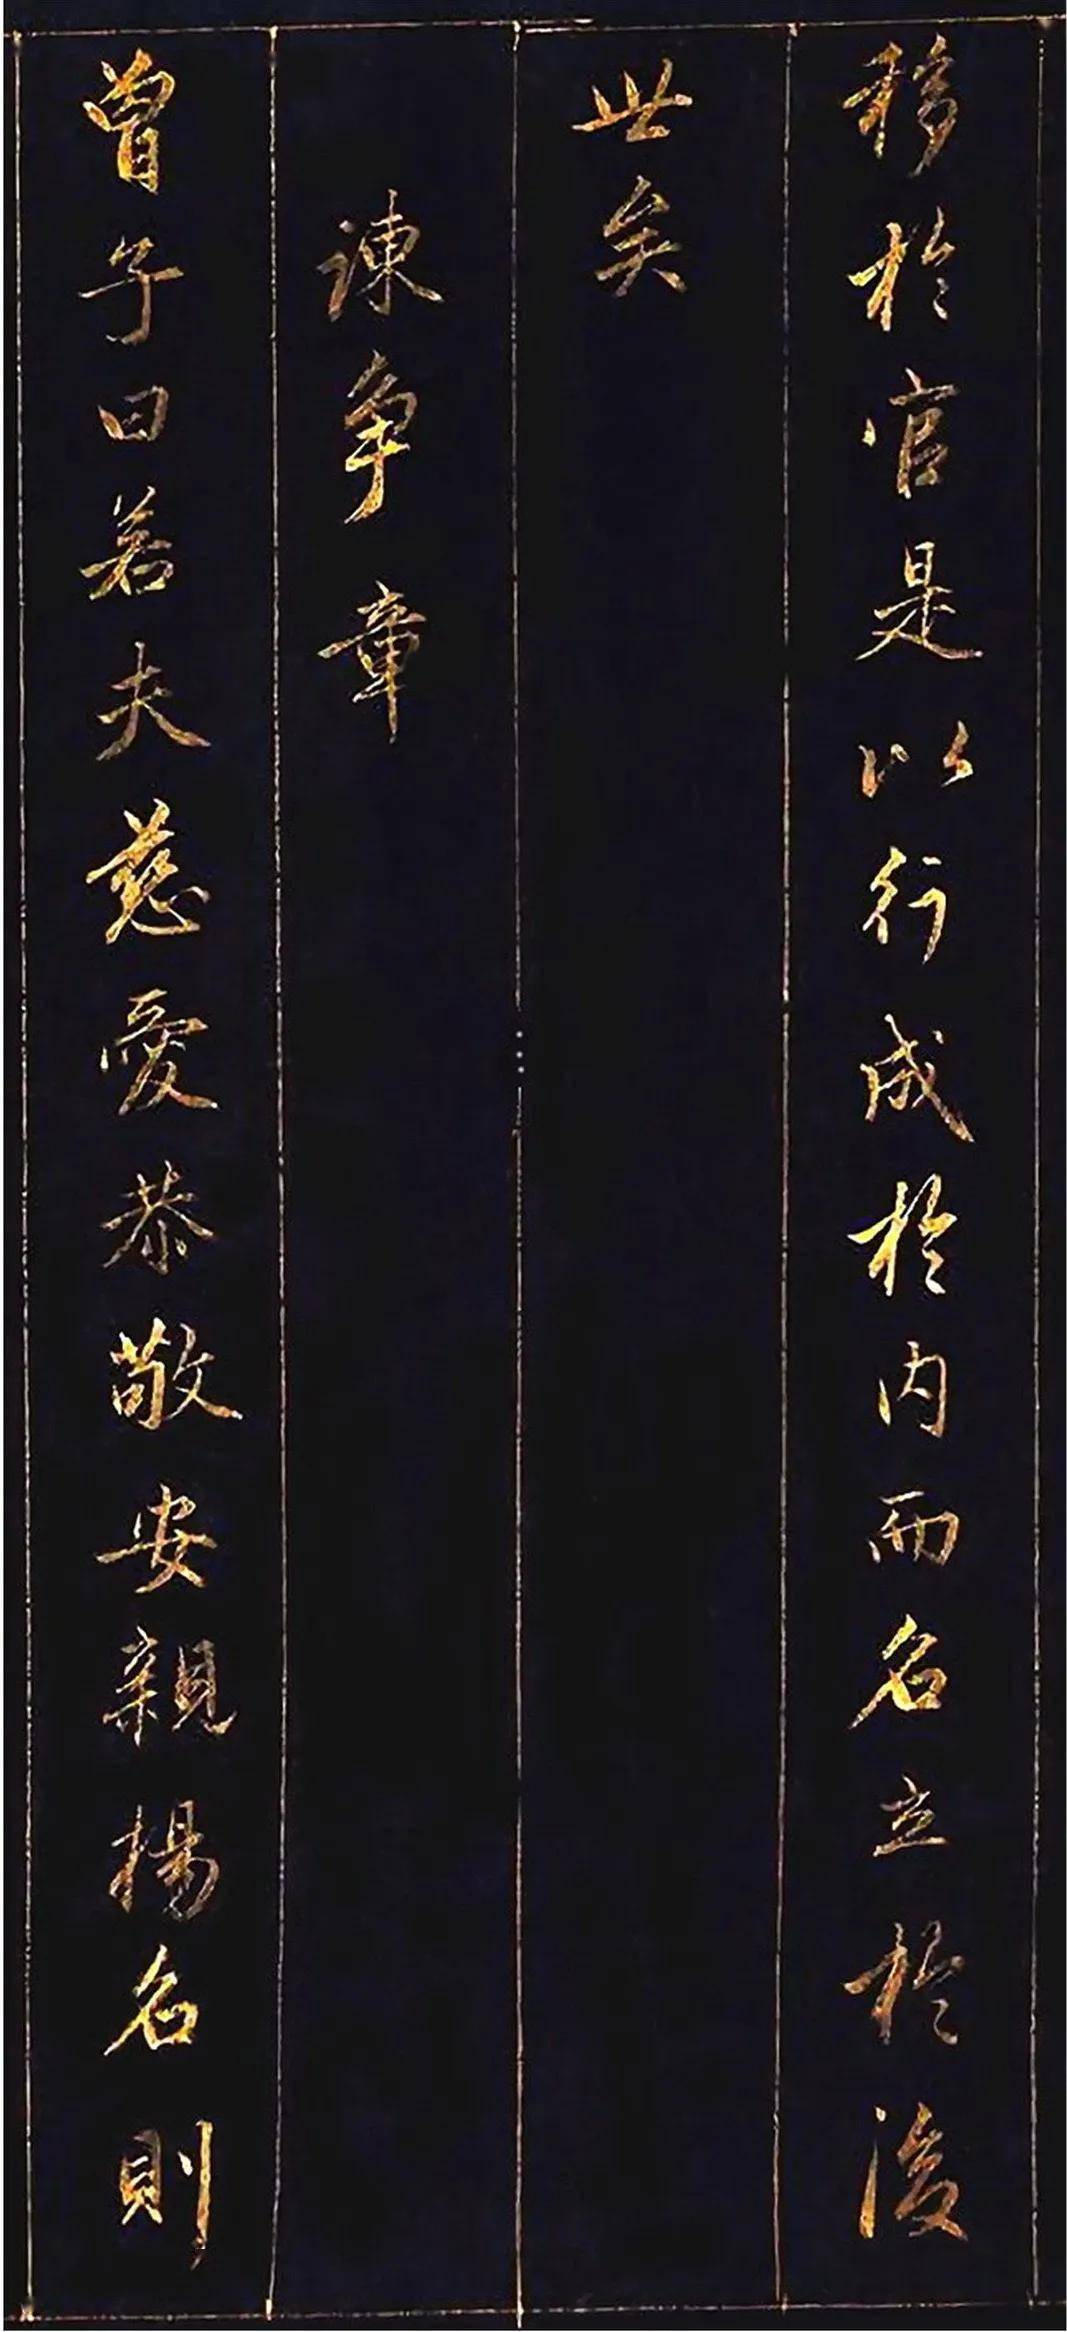 移於官是以行成於内而名立於後
世矣
諫争章
曾子曰若夫慈愛恭敬安親揚名則